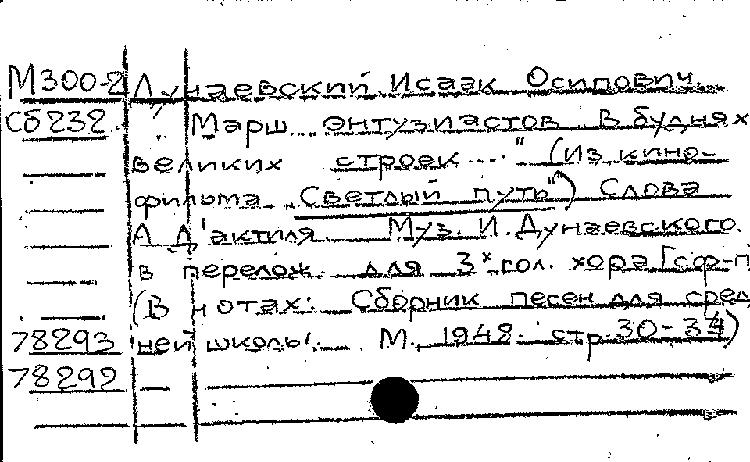 М300-2 Дунаевский Исаак Осипович.
Сб232 Марш энтузиастов "В буднях
великих строек..." (Из кино-
фильма "Светлый путь") Слова
А Д'актиля Муз. И. Дунаевского.
в перелож. для 3х гол. хора [с ф-п
(В нотах: Сборник песен для сред
78293 ней школы. М. 1948. стр. 30-34)
78292